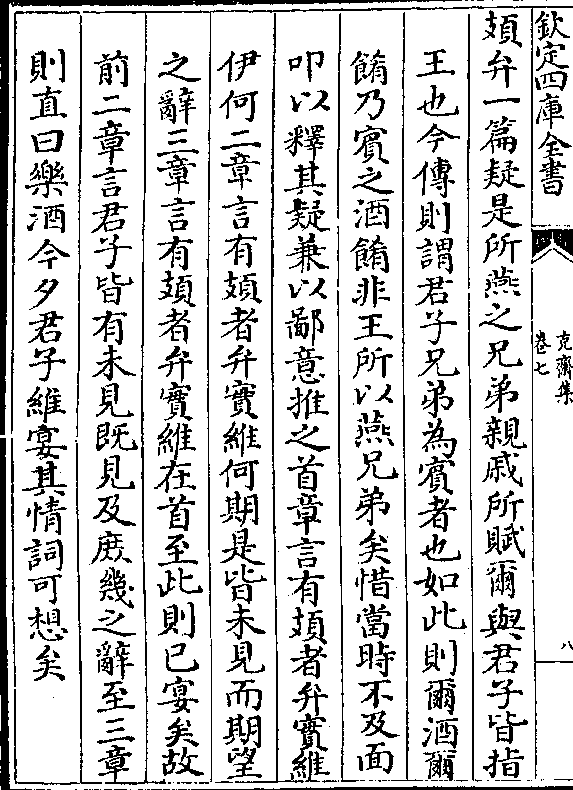 欽定四庫全書
克齋集
卷七
八
頍弁一篇疑是所燕之兄弟親戚所賦爾與君子皆指
王也今傳則謂君子兄弟為賓者也如此則爾酒爾
餚乃賓之酒餚非王所以燕兄弟矣惜當時不及面
叩以釋其疑兼以鄙意推之首章言有頍者弁實維
伊何二章言有頍者弁實維何期是皆未見而期望
之辭三章言有頍者弁實維在首至此則已宴矣故
前二章言君子皆有未見既見及庶幾之辭至三章
則直曰樂酒今夕君子維宴其情詞可想矣